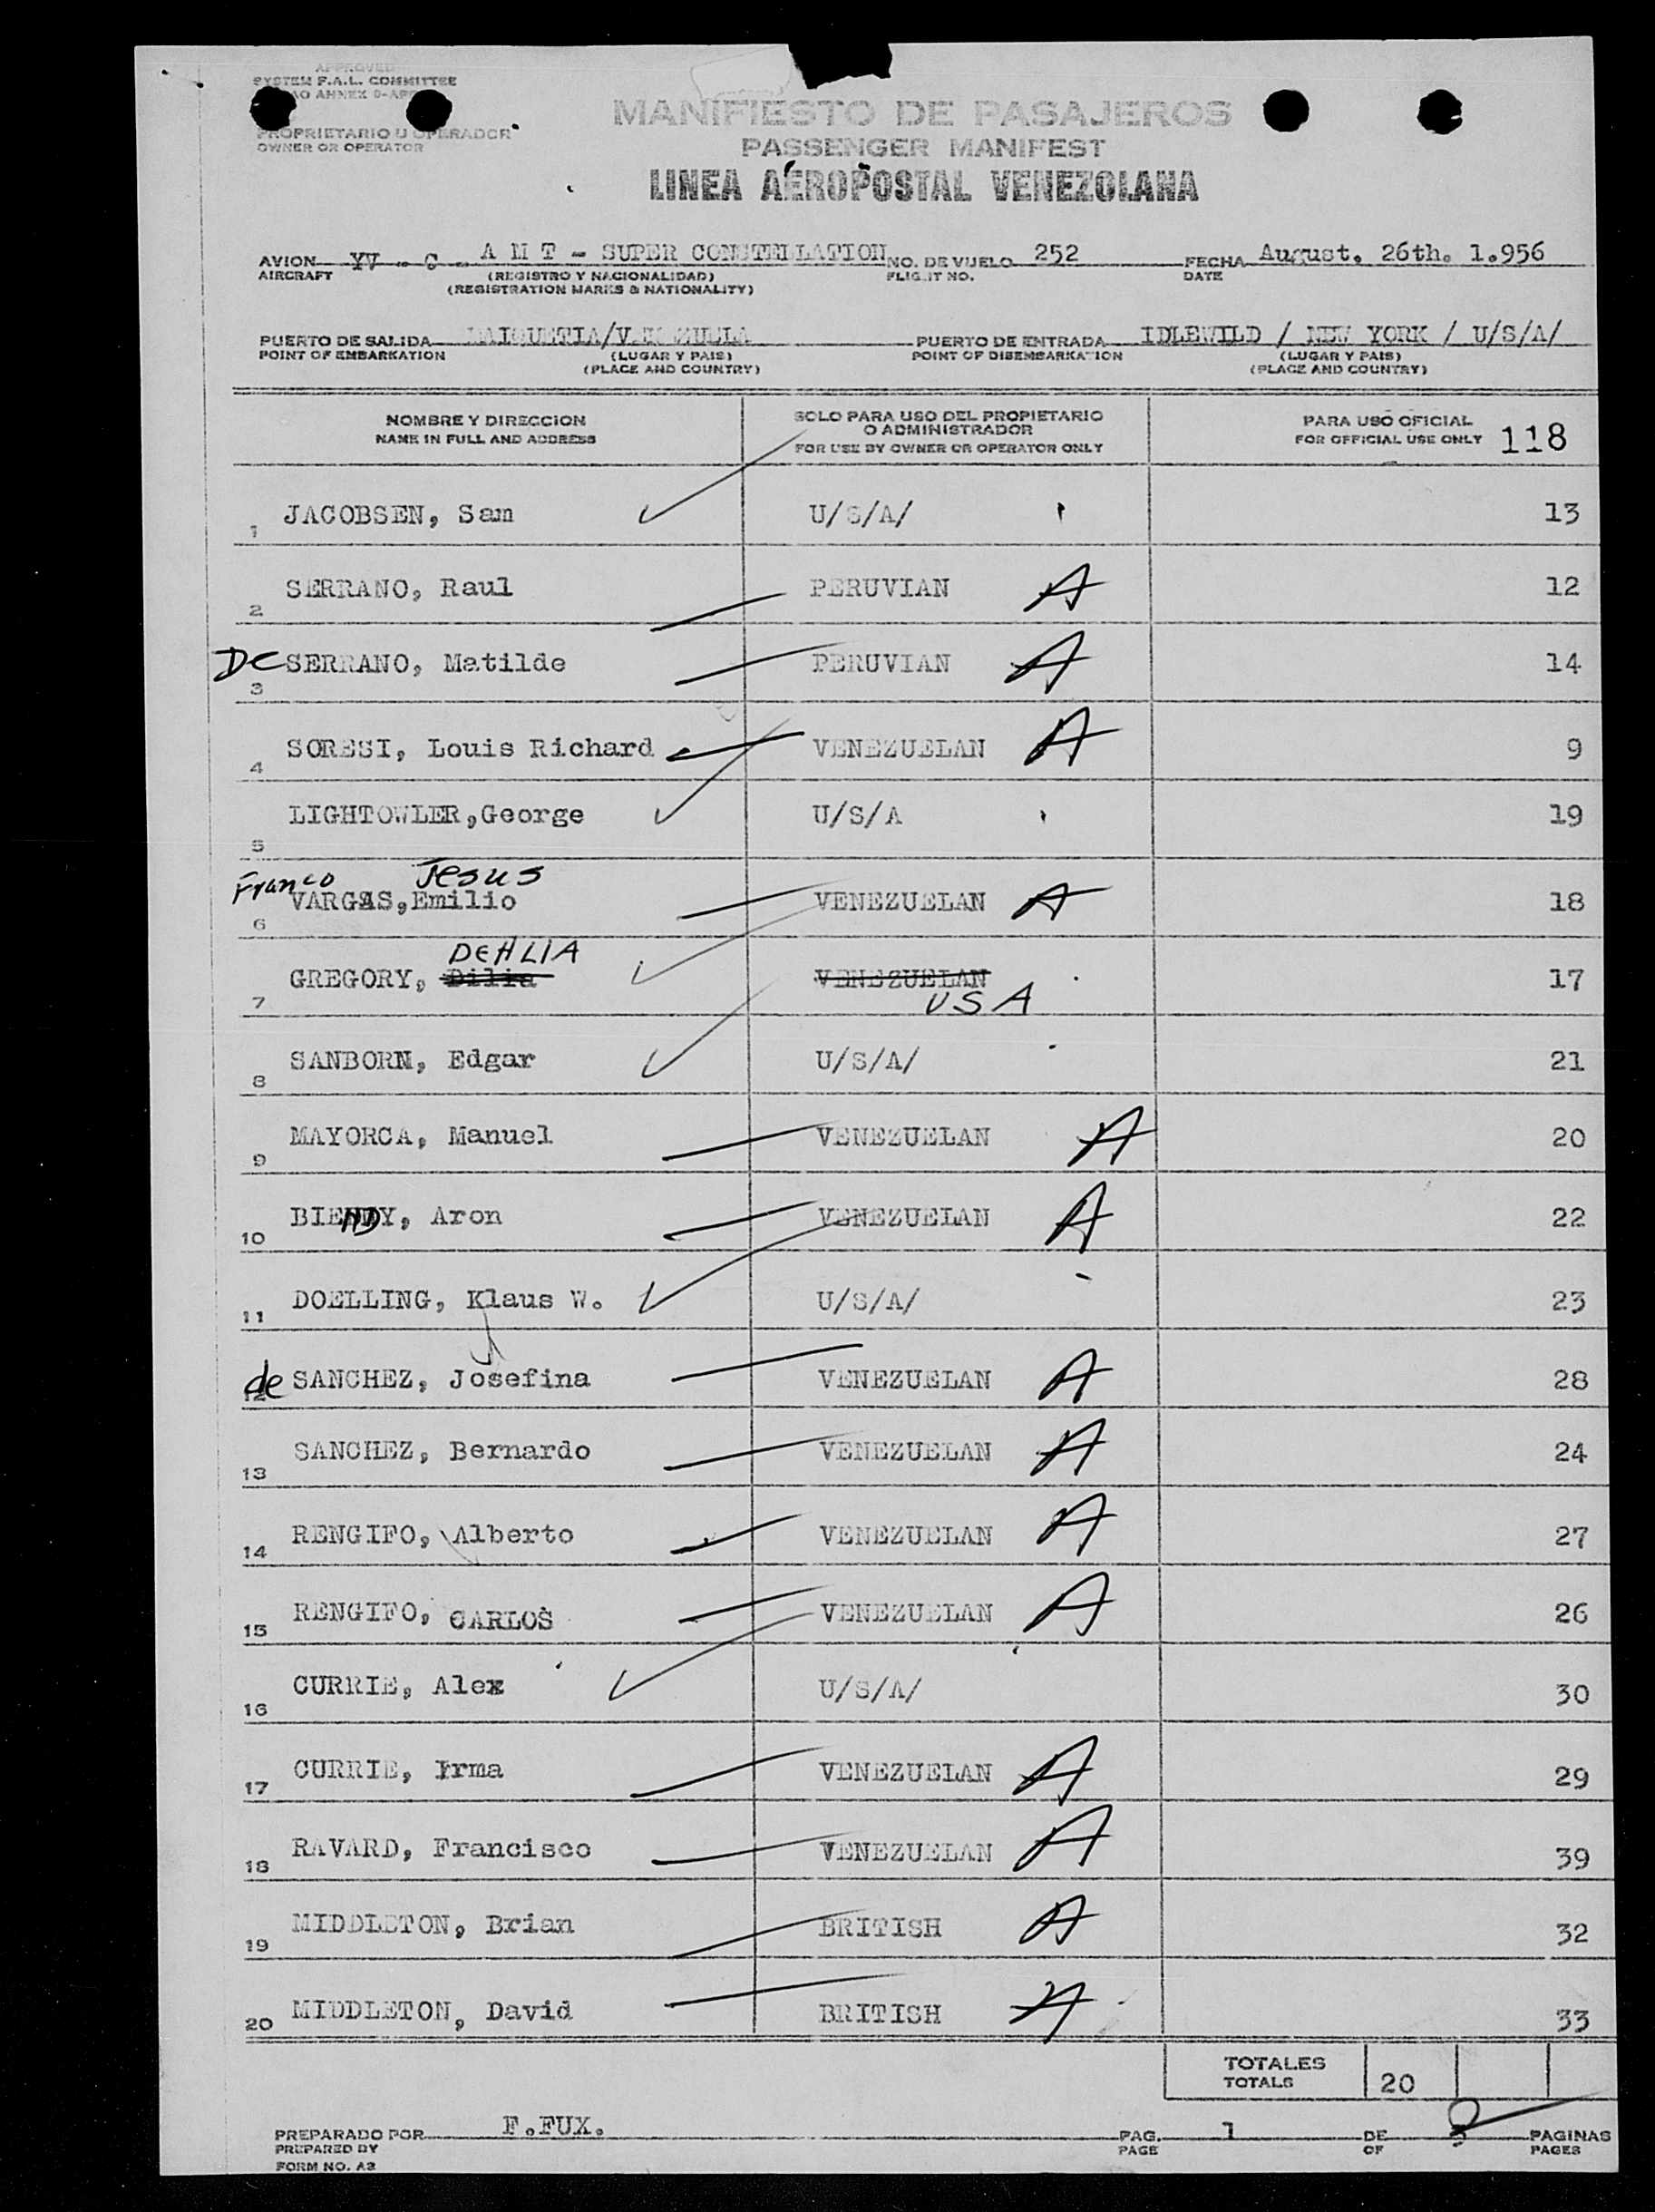 APPROVED
SYSTEM F.A.L. COMMITTEE
AO ANNEX 9-AP
PROPRIETARIO U OPERADOR
OWNER OR OPERATOR
MANIFIESTO DE PASAJEROS
PASSENGER MANIFEST
LINEA AEROPOSTAL VENEZOLANA
AVION YV - C - A M T - SUPER CONSTELLATION NO. DE VUELO 252 FECHA August. 26th. 1.956
AIRCRAFT (REGISTRO Y NACIONALIDAD) FLIGHT NO. DATE
(REGISTRATION MARKS & NATIONALITY)
PUERTO DE SALIDA MAIQUETIA/VENEZUELA PUERTO DE ENTRADA IDLEWILD / NEW YORK / U/S/A/
POINT OF EMBARKATION (LUGAR Y PAIS) POINT OF DISEMBARKATION (LUGAR Y PAIS)
(PLACE AND COUNTRY) (PLACE AND COUNTRY)
NOMBRE Y DIRECCION SOLO PARA USO DEL PROPIETARIO PARA USO OFICIAL
O ADMINISTRADOR
NAME IN FULL AND ADDRESS FOR USE BY OWNER OR OPERATOR ONLY FOR OFFICIAL USE ONLY 118
1 JACOBSEN, Sam U/S/A/ 13
2 SERRANO, Raul PERUVIAN A 12
3 De SERRANO, Matilde PERUVIAN A 14
4 SORESI, Louis Richard VENEZUELAN A 9
5 LIGHTOWLER,George U/S/A 19
Franco Jesus
6 VARGAS,Emilio VENEZUELAN A 18
DEHLIA
7 GREGORY, Dilia VENEZUELAN 17
USA
8 SANBORN, Edgar U/S/A/ 21
9 MAYORCA, Manuel VENEZUELAN A 20
10 BIENDY, Aron VENEZUELAN A 22
11 DOELLING, Klaus W. U/S/A/ 23
12 de SANCHEZ, Josefina VENEZUELAN A 28
13 SANCHEZ, Bernardo VENEZUELAN A 24
14 RENGIFO, Alberto VENEZUELAN A 27
15 RENGIFO, CARLOS VENEZUELAN A 26
16 CURRIE, Alex U/S/A/ 30
17 CURRIE, Irma VENEZUELAN A 29
18 RAVARD, Francisco VENEZUELAN A 39
19 MIDDLETON, Brian BRITISH A 32
20 MIDDLETON, David BRITISH A 33
TOTALES
TOTALS 20
PREPARADO POR F.FUX. PAG. 1 DE PAGINAS
PREPARED BY PAGE OF PAGES
FORM NO. A3